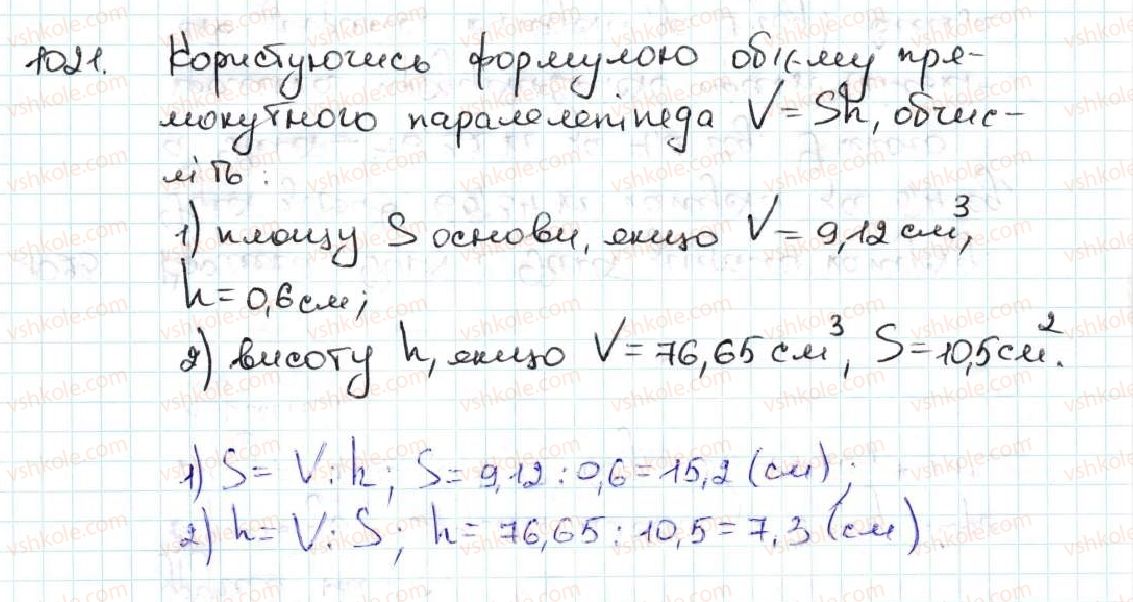 1021. Користуючись формулою об'єму пря-
мокутного паралелепіпеда V=Sh, обчис-
літь:
1) площу S основи, якщо V=9,12 см³,
h=0,6 см;
2) висоту h, якщо V=76,65 см³, S=10,5 см².
1) S= V:h; S= 9,12 : 0,6 = 15,2 (см);
2) h= V:S; h= 76,65 : 10,5 = 7,3 (см).